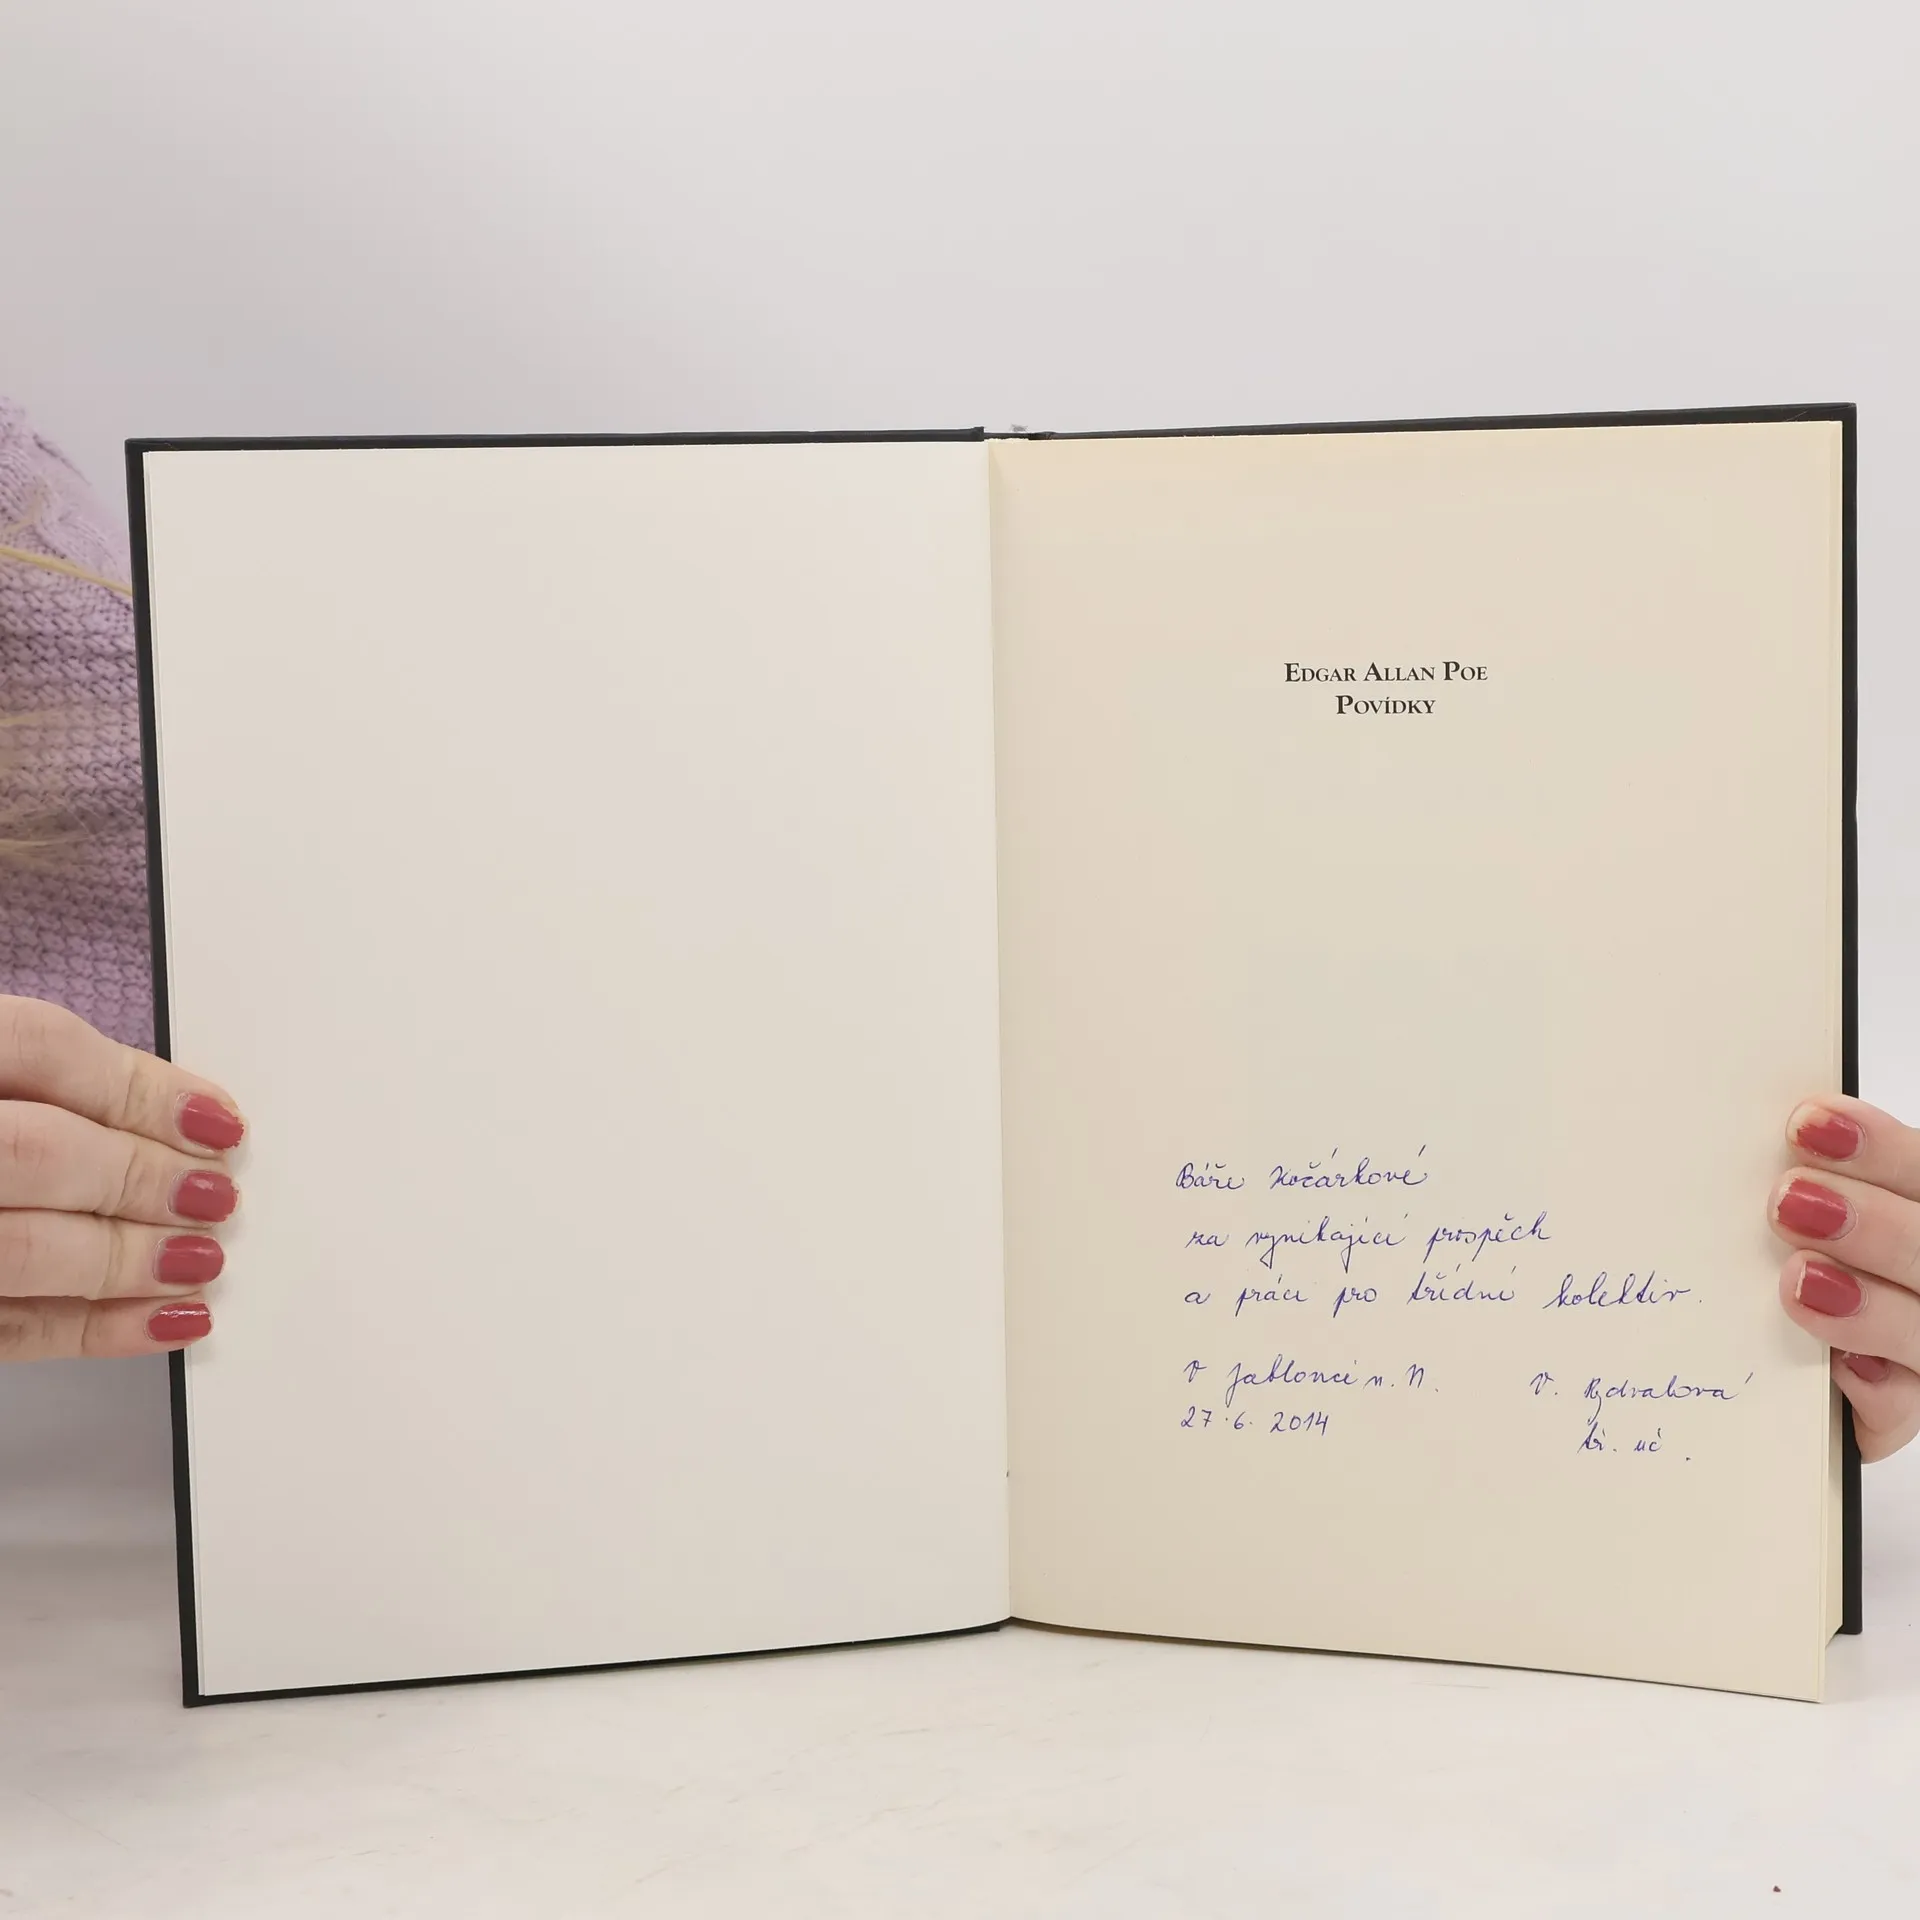 Edgar Allan Poe
Povídky
Báře Kočárkové
za vynikající prospěch
a práci pro třídní kolektiv.
V Jablonci n. N.
27.6. 2014
V. Rydvalová
tř. uč.